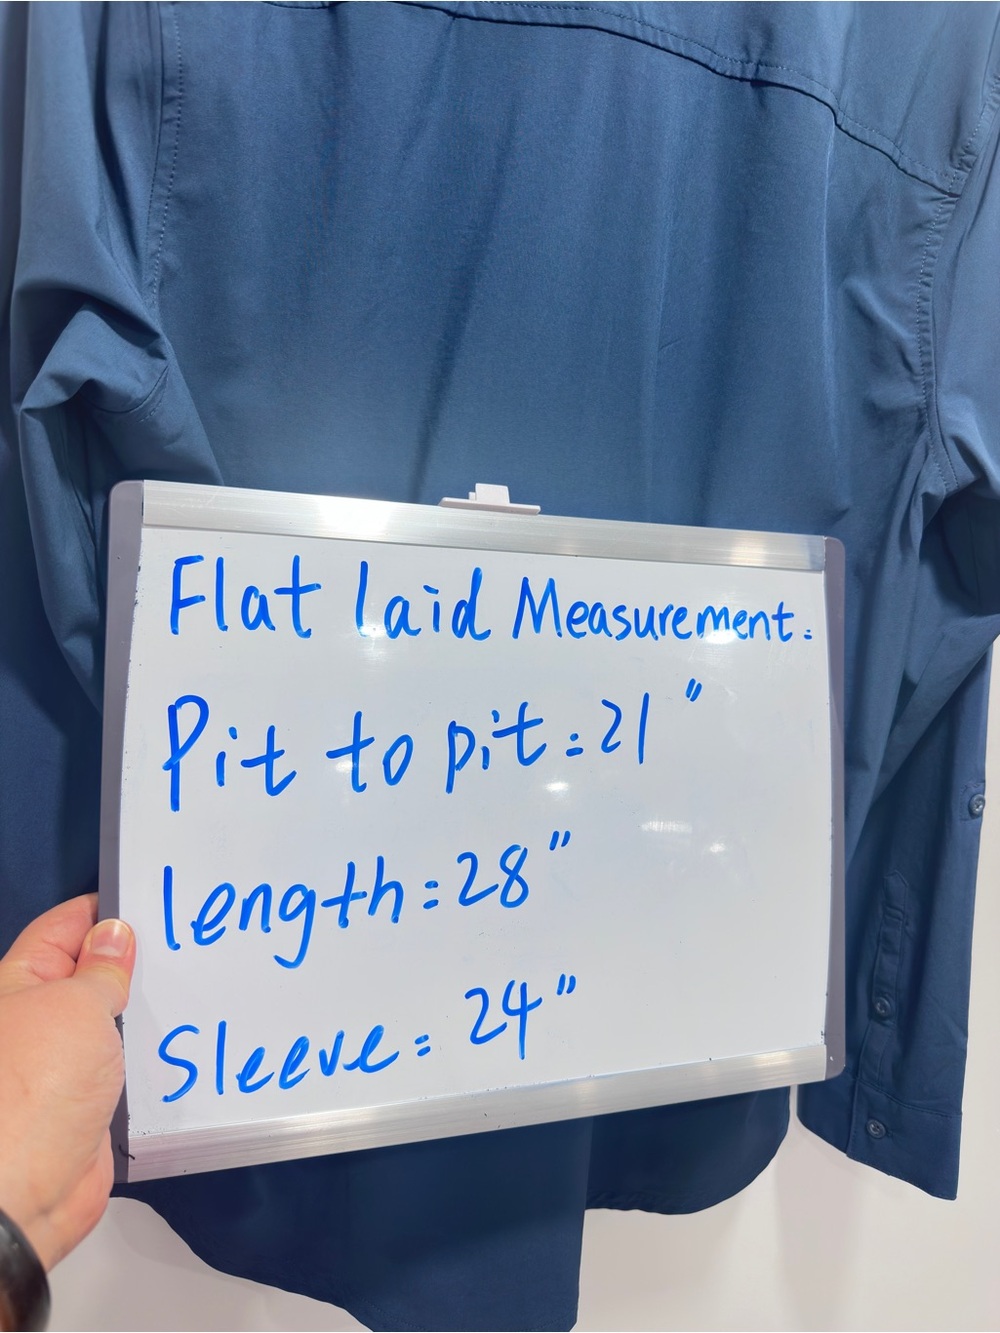 Flat laid Measurement:
Pit to pit=21"
length=28"
Sleeve=24"